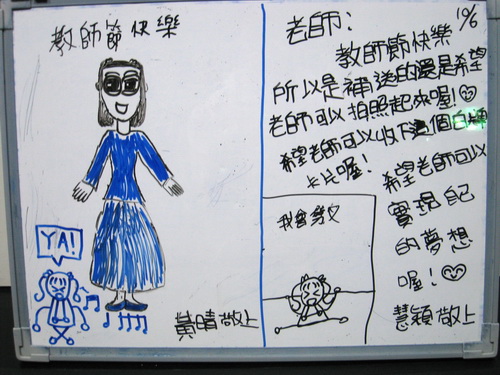 教師節快樂
YA!
黃晴敬上
老師:
教師節快樂
所以是補送的還是希望
老師可以拍照起來喔!
希望老師可以收下這個白
卡片喔!
我會努文
希望老師可以
實現自己
的夢想
喔!
慧穎敬上